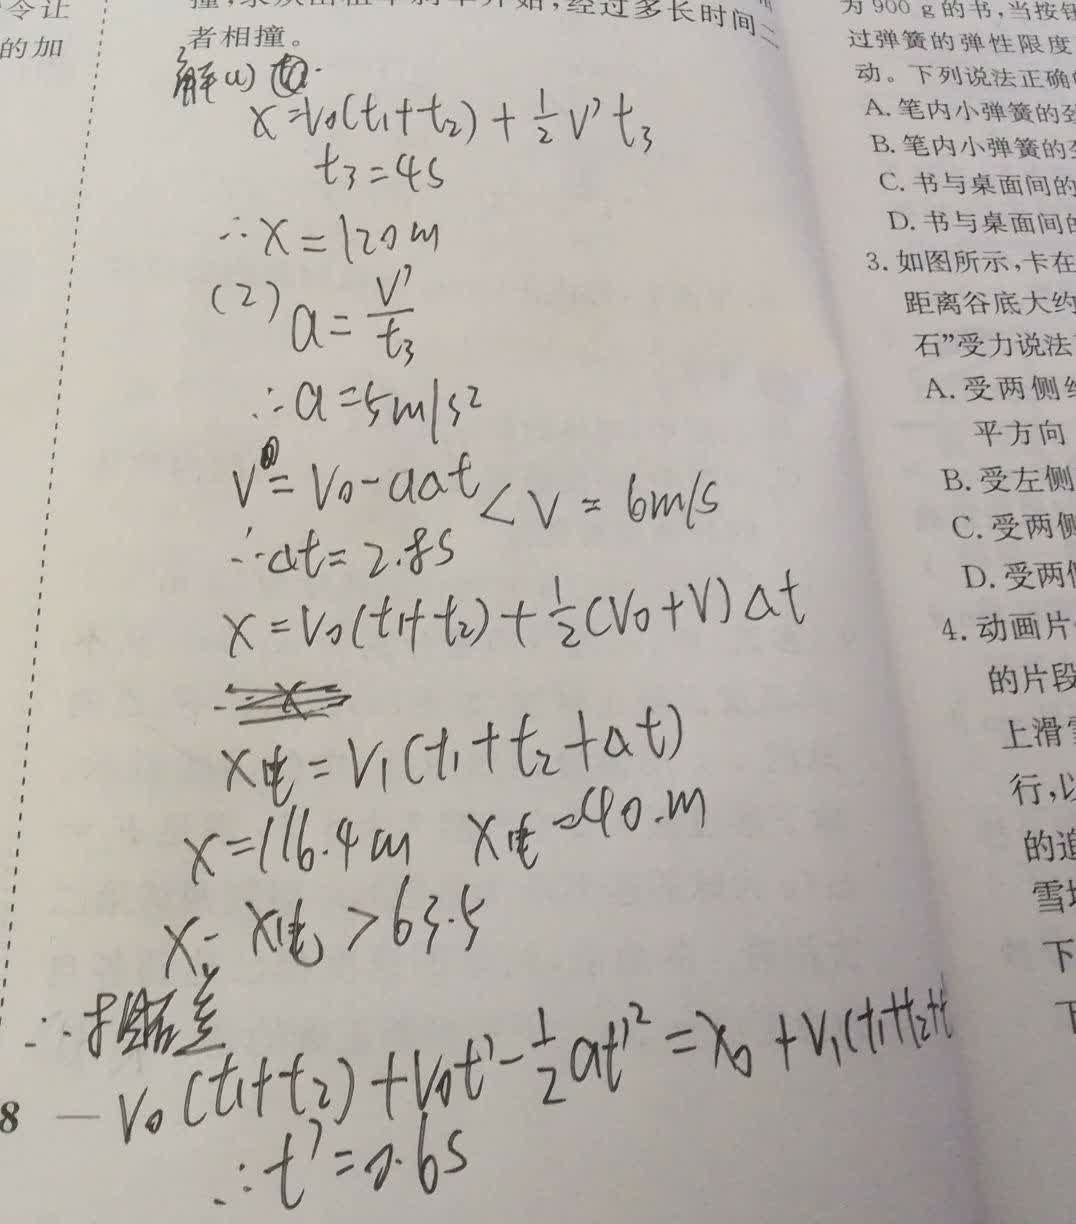 令让
的加
撞,求从出租车刹车开始,经过多长时间二
者相撞。
解(1)
x=v₀(t₁+t₂)+½v't₃
t₃=4s
∴x=120m
(2) a=v'/t₃
∴a=5m/s²
v=v₀-aΔt<v=6m/s
∴Δt=2.8s
x=v₀(t₁+t₂)+½(v₀+v)Δt
x电=v₁(t₁+t₂+Δt)
x=116.4m x电=40.m
x- x电>63.5
∴
v₀(t₁+t₂)+v₀t'-½at'²=x₀+v₁(t₁+t₂+t
∴t'=0.6s
8
为 900 g 的书,当按钮
过弹簧的弹性限度
动。下列说法正确
A. 笔内小弹簧的劲
B. 笔内小弹簧的
C. 书与桌面间的
D. 书与桌面间
3. 如图所示,卡在
距离谷底大约
石”受力说法
A. 受两侧
平方向
B. 受左侧
C. 受两侧
D. 受两
4. 动画片
的片段
上滑
行,以
的追
雪
下
下